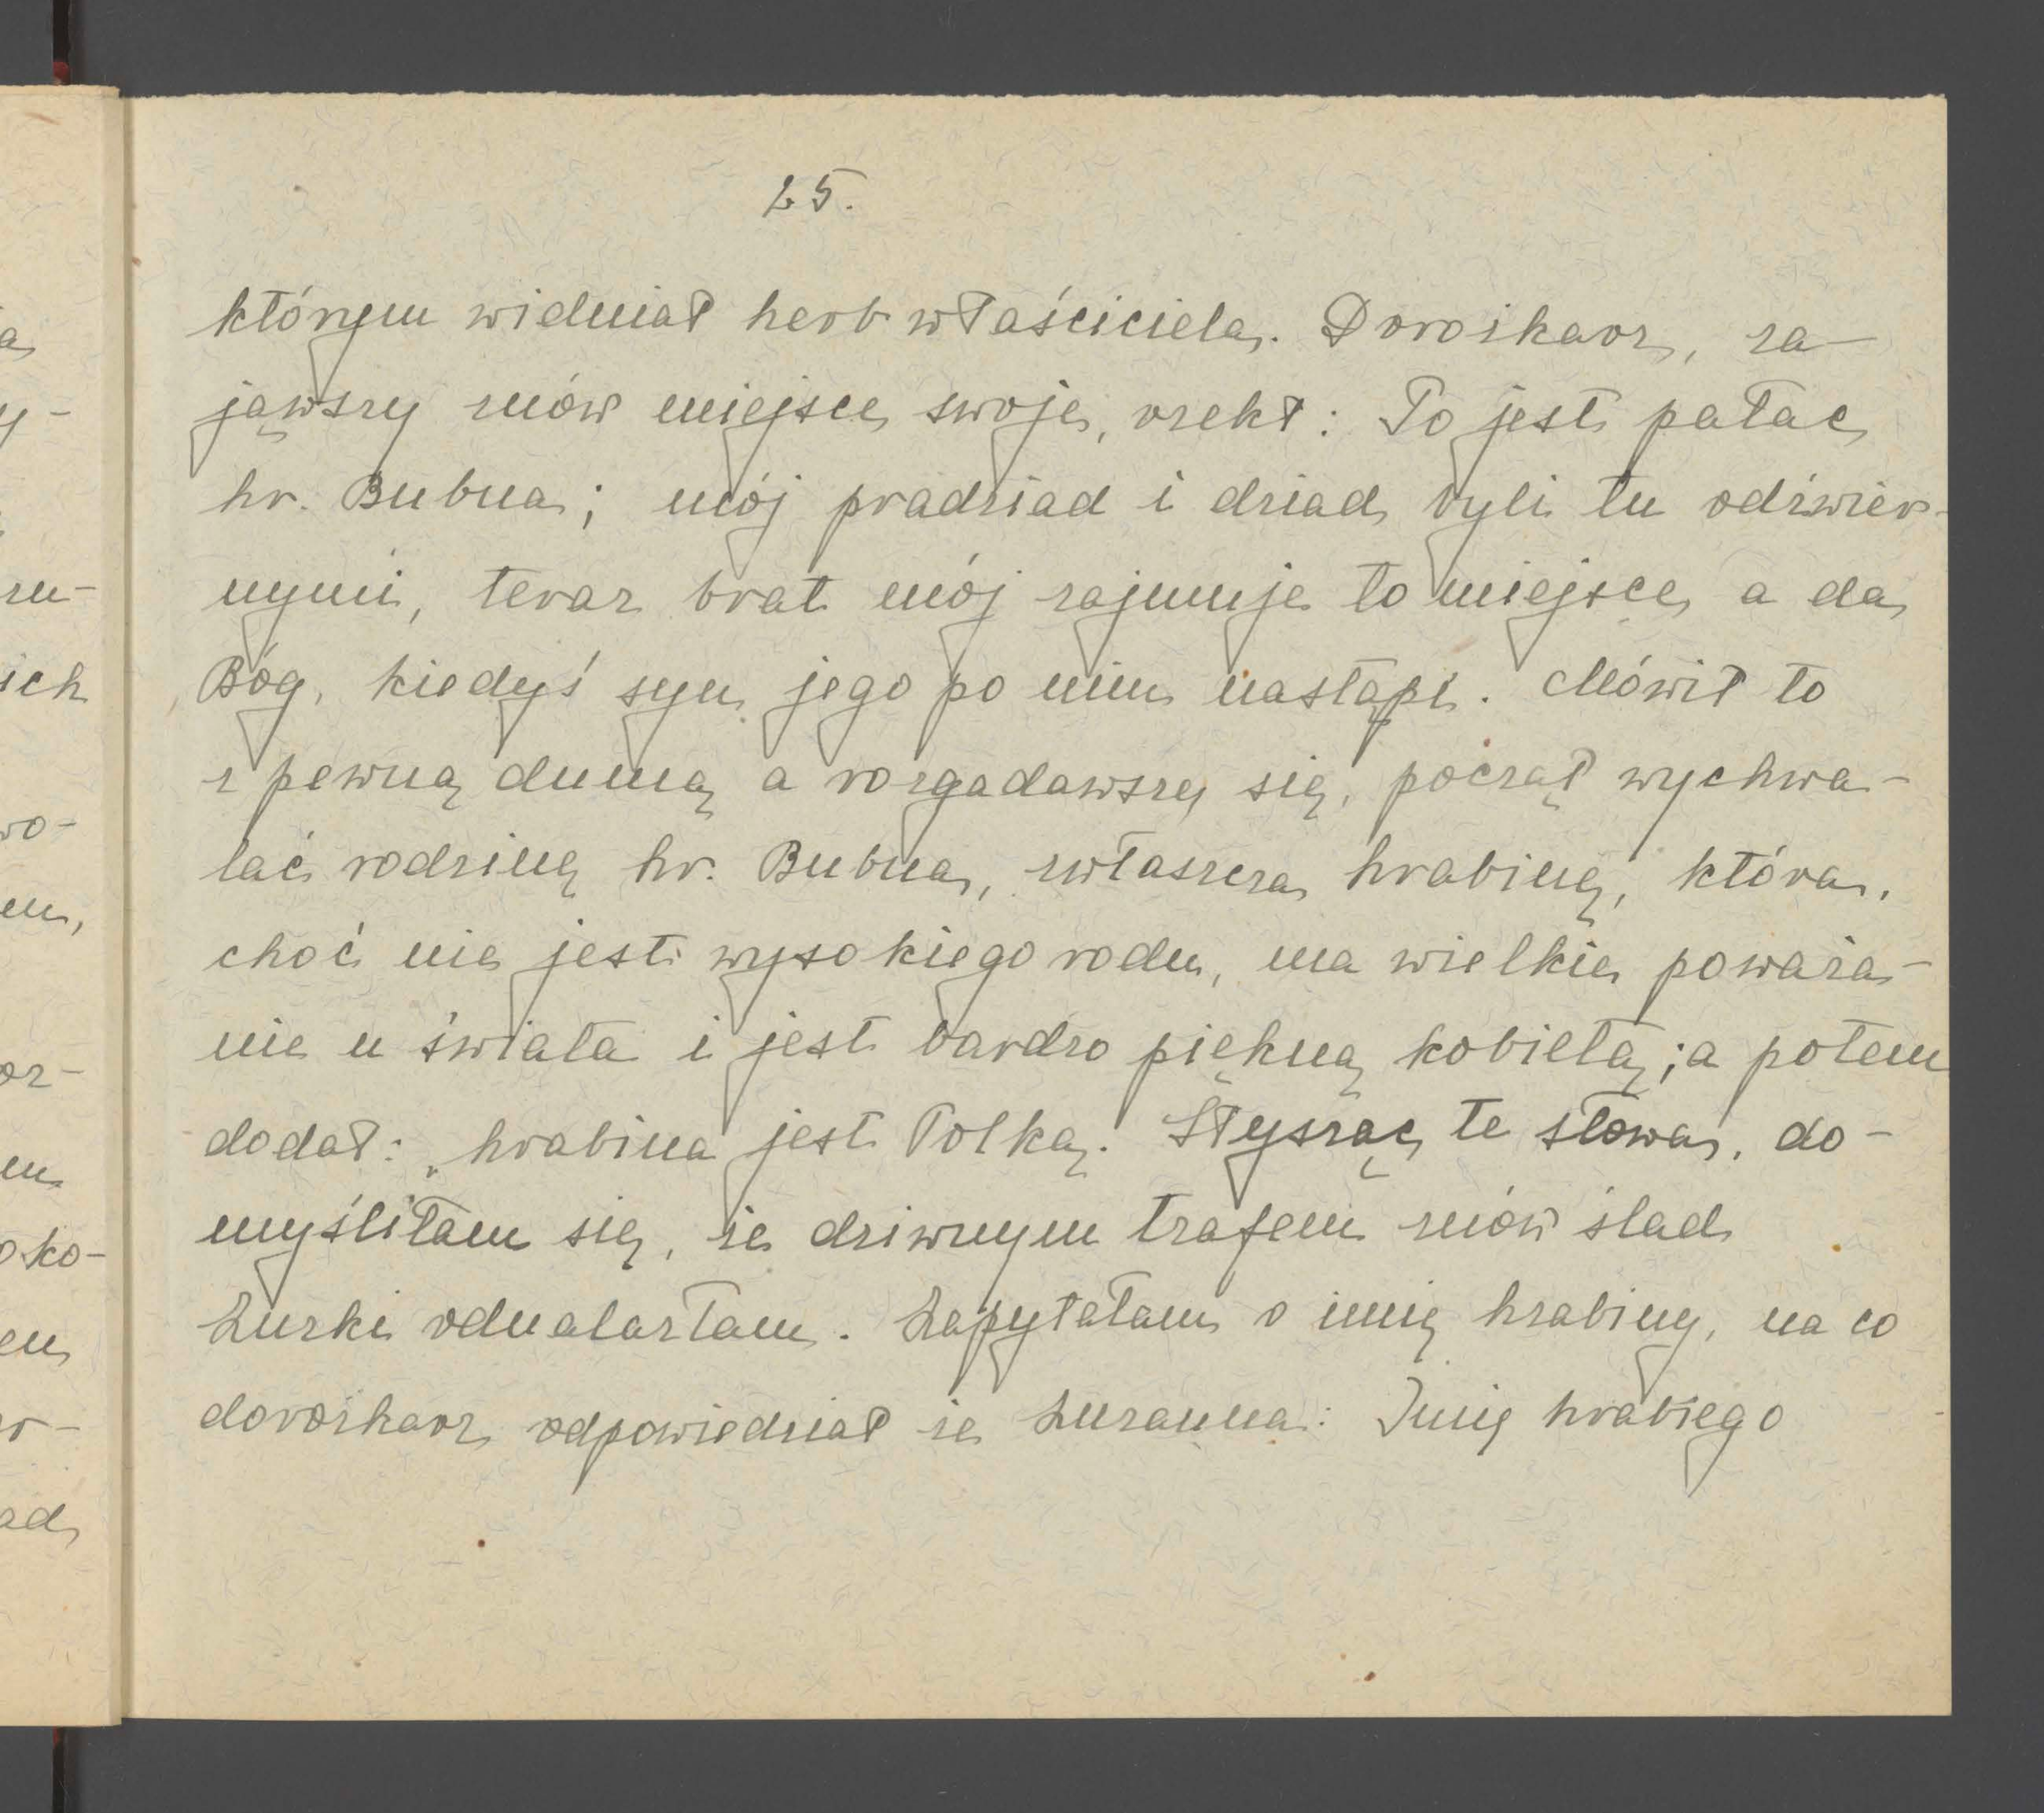 25.
którym widniał herb właściciela. Dorożkarz, za-
jąwszy znów miejsce swoje, rzekł: To jest pałac
hr. Bubna; mój pradziad i dziad byli tu odźwier-
nymi, teraz brat mój zajmuje to miejsce, a da
Bóg, kiedyś syn jego po nim nastąpi. Mówił to
z pewną dumą a rozgadawszy się, począł wychwa-
lać rodzinę hr. Bubna, zwłaszcza hrabinę, która,
choć nie jest wysokiego rodu, ma wielkie poważa-
nie u świata i jest bardzo piękną kobietą; a potem
dodał: „hrabina jest Polką. Słysząc te słowa, do-
myśliłam się, że dziwnym trafem znów ślad
Zuzki odnalazłam. Zapytałam o imię hrabiny, na co
dorożkarz odpowiedział że Zuzanna: Imię hrabiego